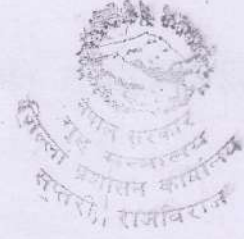 नेपाल सरकार
गृह मन्त्रालय
जिल्ला प्रशासन कार्यालय
सप्तरी, राजविराज